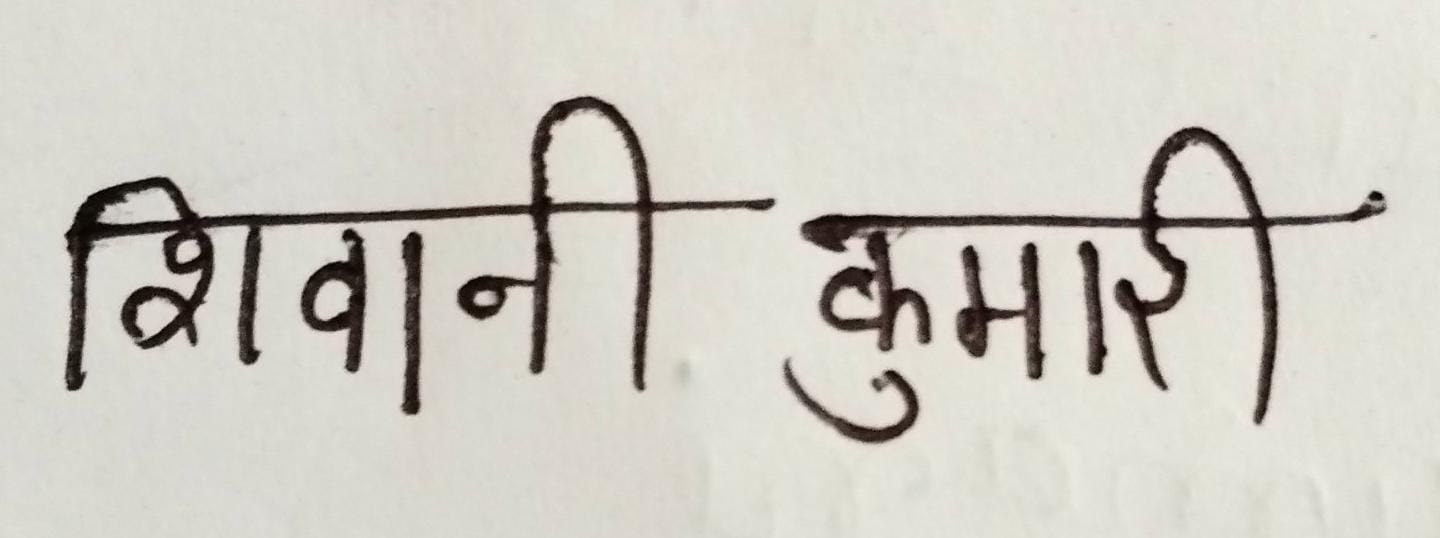 शिवानी कुमारी